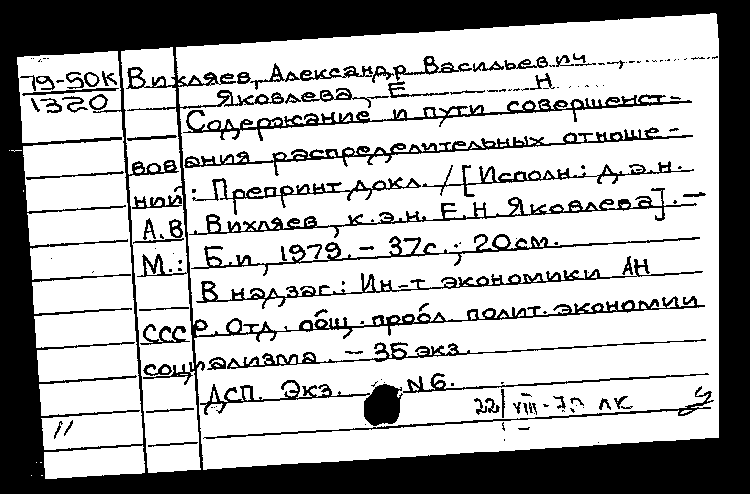 79-50К Вихляев, Александр Васильевич,
1320 Яковлева, Е Н
Содержание и пути совершенст-
вования распределительных отноше-
ний: Препринт докл. / [Исполн.: д.э.н.
А.В. Вихляев, к.э.н. Е.Н. Яковлева]. —
М.: Б.и, 1979. - 37с.; 20см.
В надзаг.: Ин-т экономики АН
СССР. Отд. общ. пробл. полит. экономии
социализма. - 35 экз.
ДСП. Экз. N6.
22/VIII-79 ЛК
//